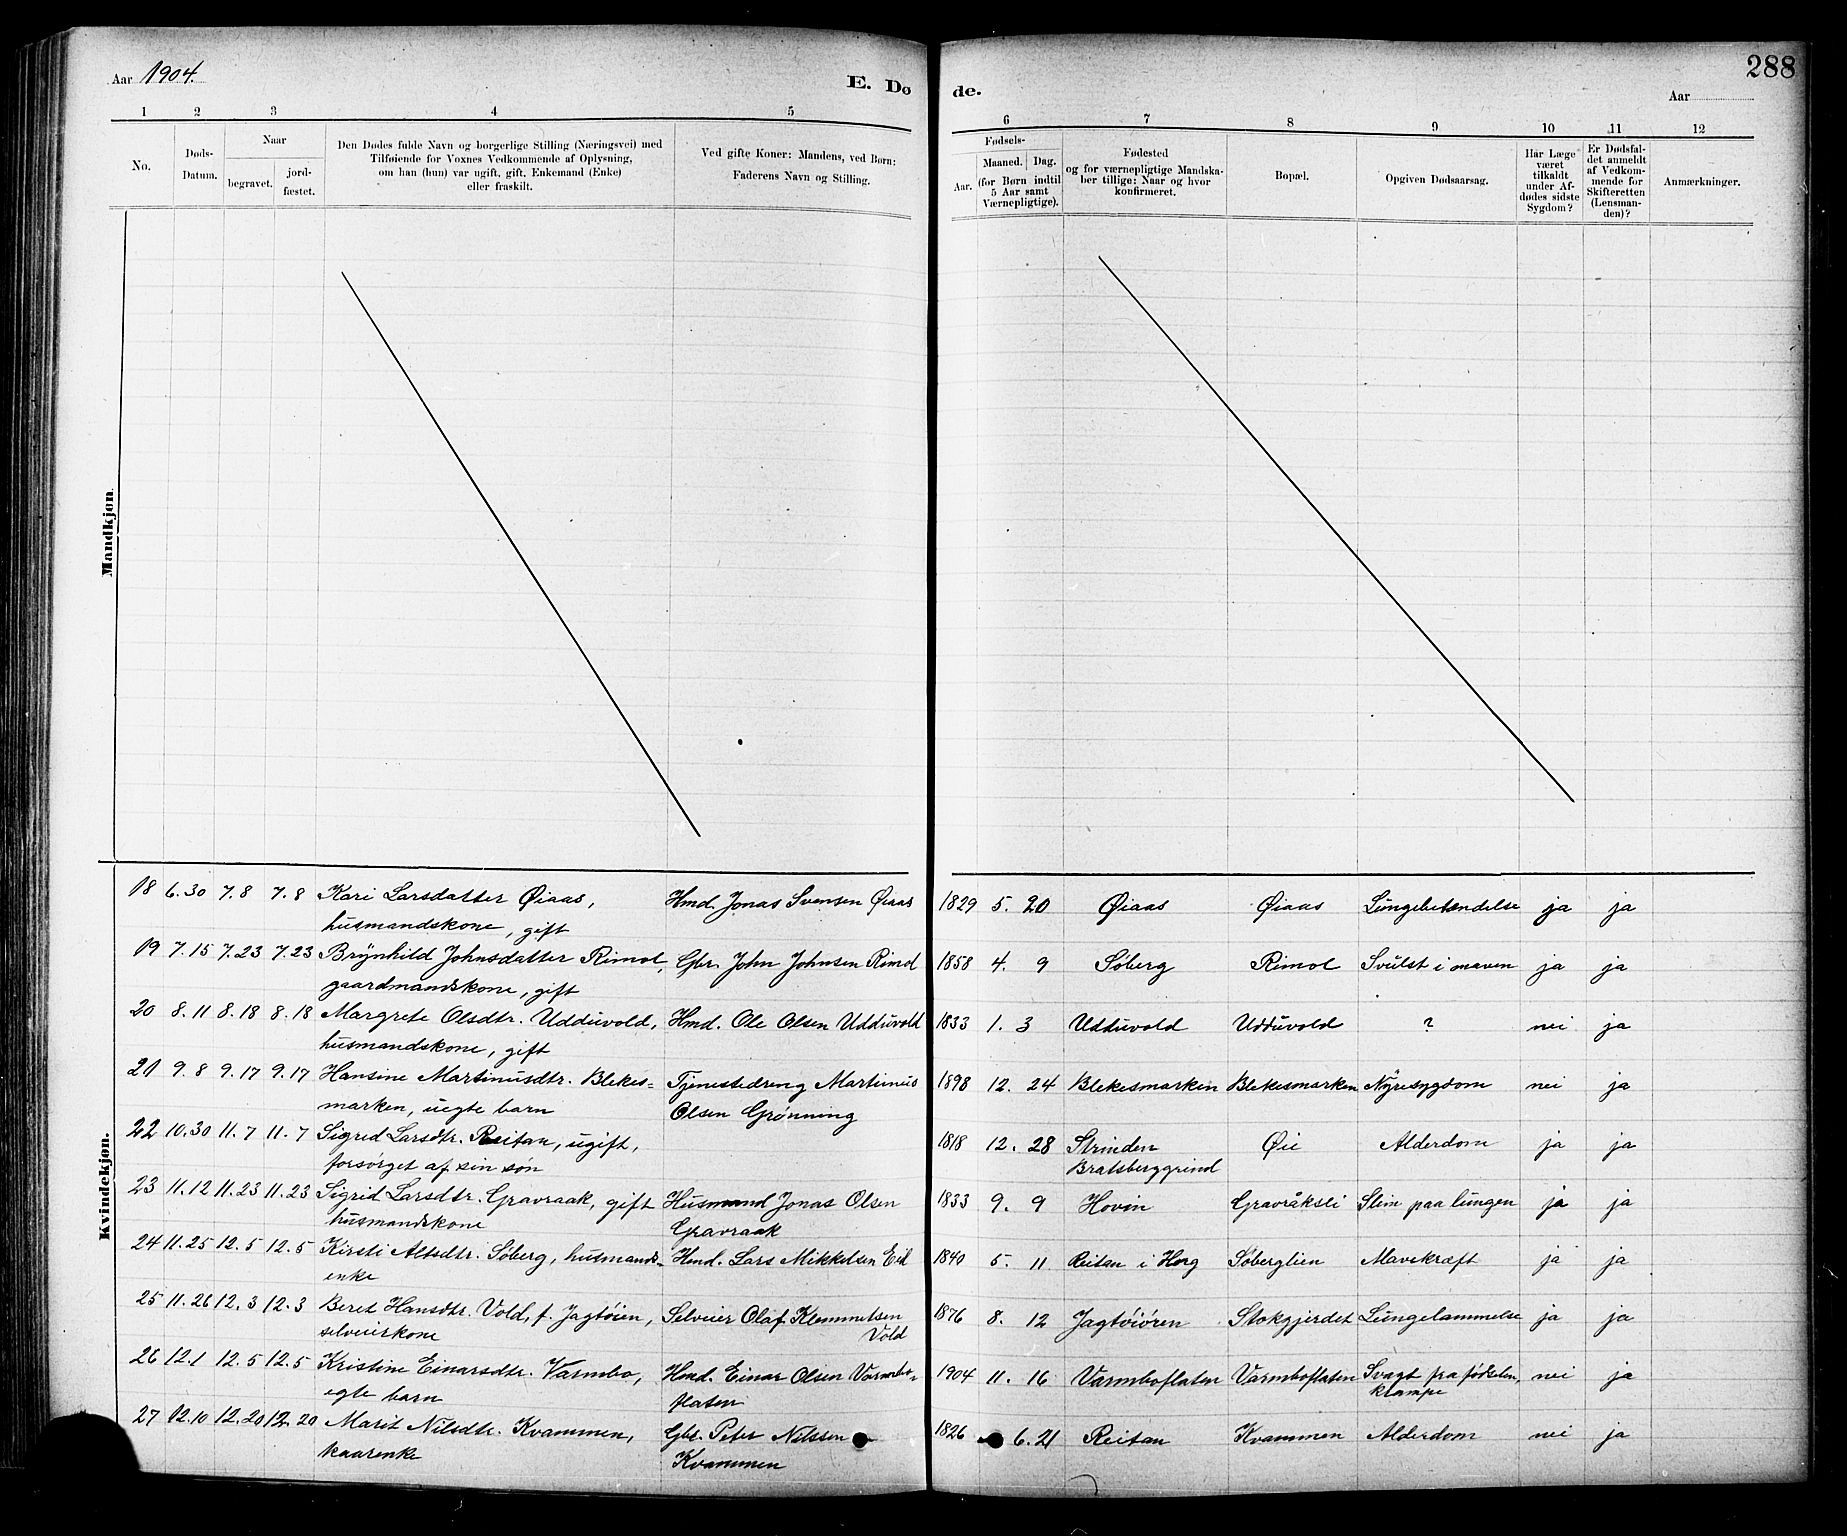 Aar 1904.
E. Dø
de.
288
Aar
1 2 3 4 5
6 7 8 9 10 11 12
No.
Døds-
Datum.
Naar
begravet.
jord-
fæstet.
Den Dødes fulde Navn og borgerlige Stilling (Næringsvei) med
Tilføiende for Voxnes Vedkommende af Oplysning,
om han (hun) var ugift, gift, Enkemand (Enke)
eller fraskilt.
Ved gifte Koner: Mandens, ved Børn:
Faderens Navn og Stilling.
Fødsels-
Aar.
Maaned. Dag.
(for Børn indtil
5 Aar samt
Værnepligtige).
Fødested
og for værnepligtige Mandska-
ber tillige: Naar og hvor
konfirmeret.
Bopæl.
Opgiven Dødsaarsag.
Har Læge
været
tilkaldt
under Af-
dødes sidste
Sygdom?
Er Dødsfal-
det anmeldt
af Vedkom-
mende for
Skifteretten
(Lensman-
den)?
Anmærkninger.
Mandkjøn.
Kvindekjøn.
18 6.30 7.8 7.8 Kari Larsdatter Øiaas, Hmd. Jonas Svensen Øiaas 1829 5. 20 Øiaas Øiaas Lungebetendelse ja ja
husmandskone, gift
19 7.15 7.23 7.23 Brynhild Johnsdatter Rimol, Gbr. John Johnsen Rimol 1858 4. 9 Søberg Rimol Svulst i maven ja ja
gaardmandskone, gift
20 8.11 8.18 8.18 Margrete Olsdtr. Udduvold, Hmd. Ole Olsen Udduvold 1833 1. 3 Udduvold Udduvold ? nei ja
husmandskone, gift
21 9.8 9.17 9.17 Hansine Martinusdtr. Blekes= Tjenestedreng Martinus 1898 12. 24 Blekesmarken Blekesmarken Nyresygdom nei ja
marken, uegte barn Olsen Grønning
22 10.30 11.7 11.7 Sigrid Larsdtr. Reitan, ugift, 1818 12. 28 Strinden Øie Alderdom ja ja
forsørget af sin søn Bratsberggrind
23 11.12 11.23 11.23 Sigrid Larsdtr. Gravraak, gift Husmand Jonas Olsen 1833 9. 9 Hovin Gravråksli Slim paa lungen ja ja
husmandskone Gravraak
24 11.25 12.5 12.5 Kirsti Altsdtr. Søberg, husmands= Hmd. Lars Mikkelsen Eid 1840 5. 11 Reitan i Horg Søberglien Mavekræft ja ja
enke
25 11.26 12.3 12.3 Beret Hansdtr. Vold, f. Jagtøien, Selveier Olaf Klemmetsen 1876 8. 12 Jagtøiøren Stokgjerdet Lungelammelse ja ja
selveierkone Vold
26 12.1 12.5 12.5 Kristine Einarsdtr. Varmbo, Hmd. Einar Olsen Varmbo= 1904 11. 16 Varmboflaten Varmboflaten Svagt fra fødselen, nei ja
egte barn flaten klampe
27 12.10 12.20 12.20 Marit Nilsdtr. Kvammen, Gbr. Peter Nilssen 1826 6.21 Reitan Kvammen Alderdom nei ja
kaarenke Kvammen